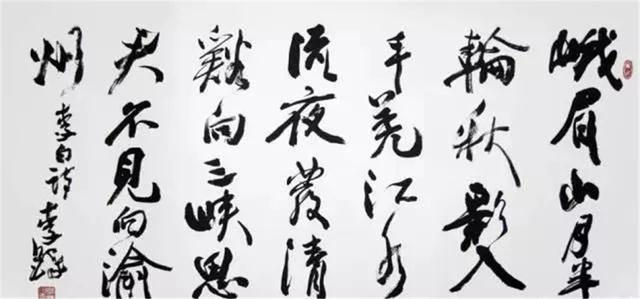 峨眉山月半
輪秋影入
平羌江水
流夜發清
谿向三峽思
君不見向渝
州
李白詩 李鐸